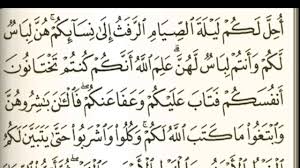 أُحِلَّ لَكُمْ لَيْلَةَ ٱلصِّيَامِ ٱلرَّفَثُ إِلَىٰ نِسَآئِكُمْ ۚ هُنَّ لِبَاسٌ
لَّكُمْ وَأَنتُمْ لِبَاسٌ لَّهُنَّ ۗ عَلِمَ ٱللَّهُ أَنَّكُمْ كُنتُمْ تَخْتَانُونَ
أَنفُسَكُمْ فَتَابَ عَلَيْكُمْ وَعَفَا عَنكُمْ ۖ فَٱلْـَٰٔنَ بَـٰشِرُوهُنَّ
وَٱبْتَغُوا۟ مَا كَتَبَ ٱللَّهُ لَكُمْ ۚ وَكُلُوا۟ وَٱشْرَبُوا۟ حَتَّىٰ يَتَبَيَّنَ لَكُمُ